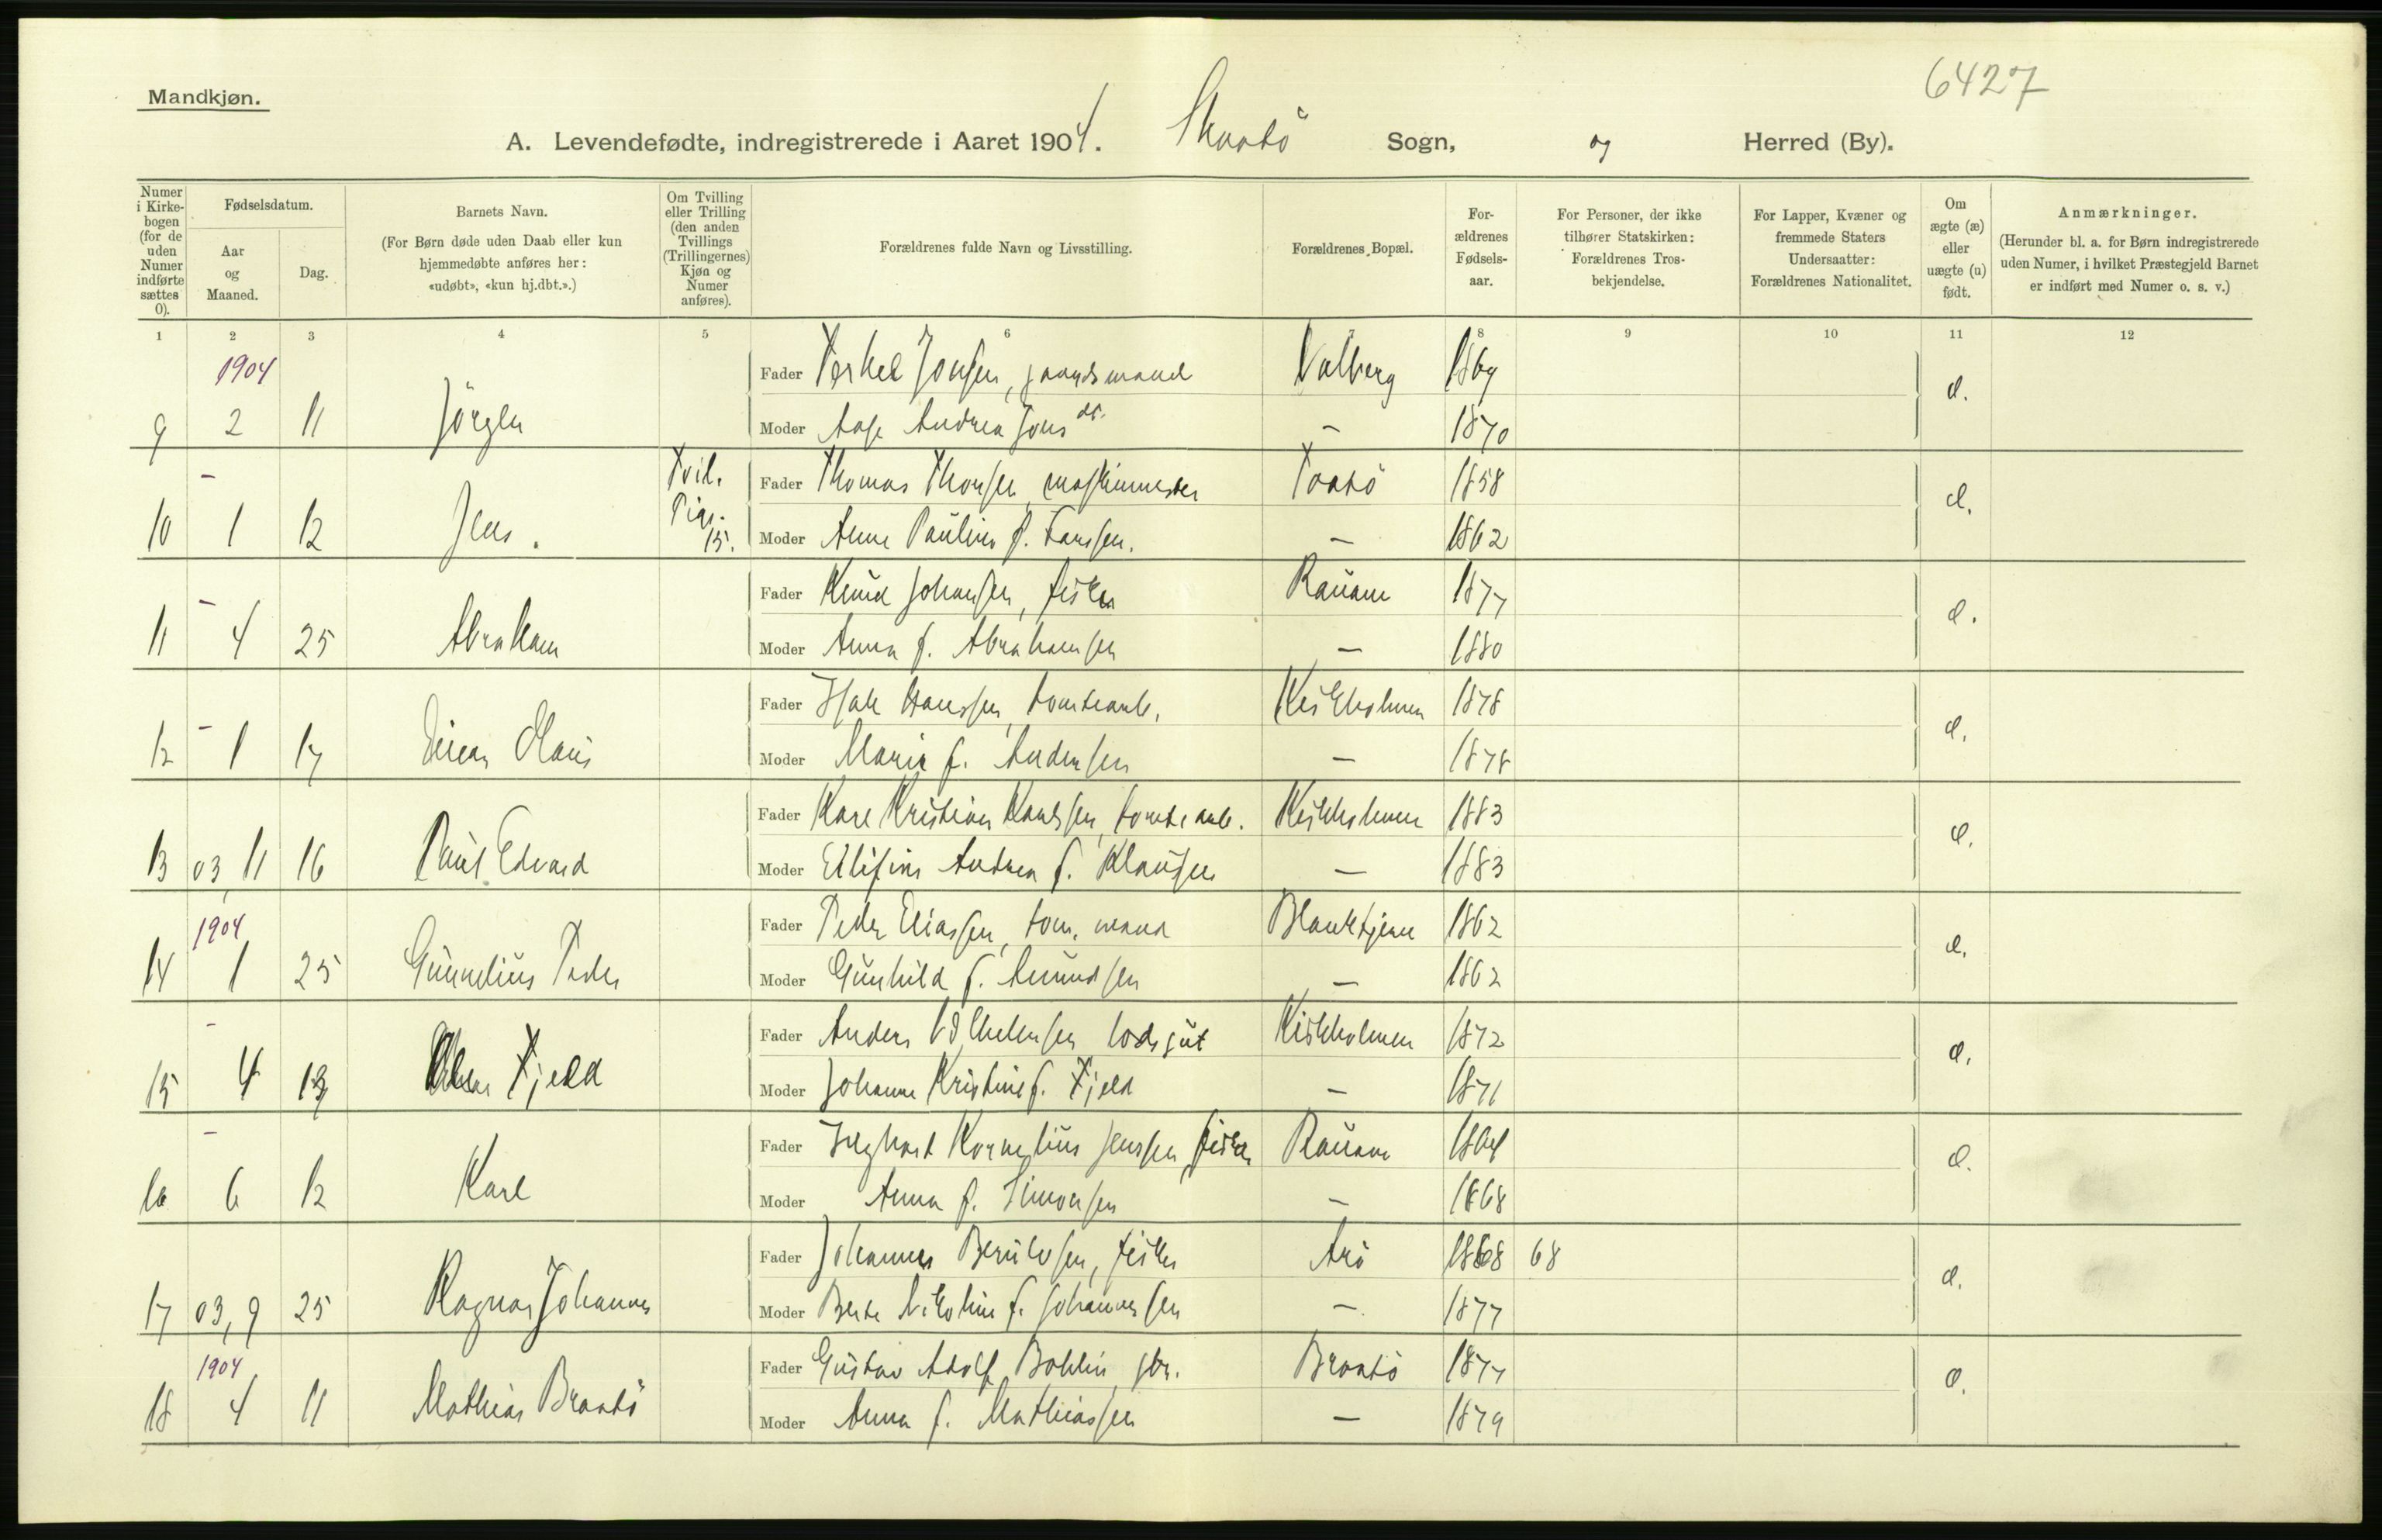 6427
Mandkjøn.
A. Levendefødte, indregistrerede i Aaret 1904. Skaatö Sogn, og Herred (By).
Numer i Kirkebogen (for de uden Numer indførte sættes 0).
Fødselsdatum.
Aar og Maaned.
Dag.
Barnets Navn.
(For Børn døde uden Daab eller kun hjemmedøbte anføres her: «udøbt», «kun hj.dbt.».)
Om Tvilling eller Trilling (den anden Tvillings (Trillingernes) Kjøn og Numer anføres).
Forældrenes fulde Navn og Livsstilling.
Forældrenes Bopæl.
Forældrenes Fødselsaar.
For Personer, der ikke tilhører Statskirken: Forældrenes Trosbekjendelse.
For Lapper, Kvæner og fremmede Staters Undersaatter: Forældrenes Nationalitet.
Om ægte (æ) eller uægte (u) født.
Anmærkninger.
(Herunder bl. a. for Børn indregistrerede uden Numer, i hvilket Præstegjeld Barnet er indført med Numer o. s. v.)
1 2 3 4 5 6 7 8 9 10 11 12
1904
Fader Terkel Jonsen, gaardsmand Valberg 1869
9 2 11 Jörgen Moder Aase Andrea Jons dt. — 1870
- Tvil. Fader Thomas Thomsen, maskinmester Toatö 1858
10 1 12 Jens. Pige. 15. Moder Anne Pauline f. Hanssen. — 1862
- Fader Knud Johansen, fisker Rauane 1877
11 4 25 Abraham Moder Anna f. Abrahamsen — 1880
- Fader Isak Hanssen, tomtearb. Kirkholmen 1878
12 1 17 Moder Marie f. Andersen — 1878
Fader Karl Kristian Knudsen, tomtearb. Kirkholmen 1883
13 03, 11 16 Paul Edvard Moder Andrea f. Klausen — 1883
1904
Fader Peder Eliassen, tom. mand Blanktjern 1862
14 1 25 Gunnelius Peder Moder Gunhild f. Amundsen — 1862
- Fader Anders Vilhelmsen lodsgut Kirkholmen 1872
15 4 13 Fjeld Moder Johanne Kristine f. Fjeld — 1871
- Fader Kornelius Jenssen, fisker Rauane 1864
16 6 12 Karl Moder Anna f. Simonsen — 1868
Fader Johannes Berulvsen, fisker Arö 1868 68
17 03, 9 25 Ragnar Johannes Moder Berte Nikoline f. Johannessen — 1877
1904
Fader Gustav Adolf Bohlin, gbr. Braatö 1877
18 4 11 Mathias Braatö Moder Anna f. Mathiassen — 1879